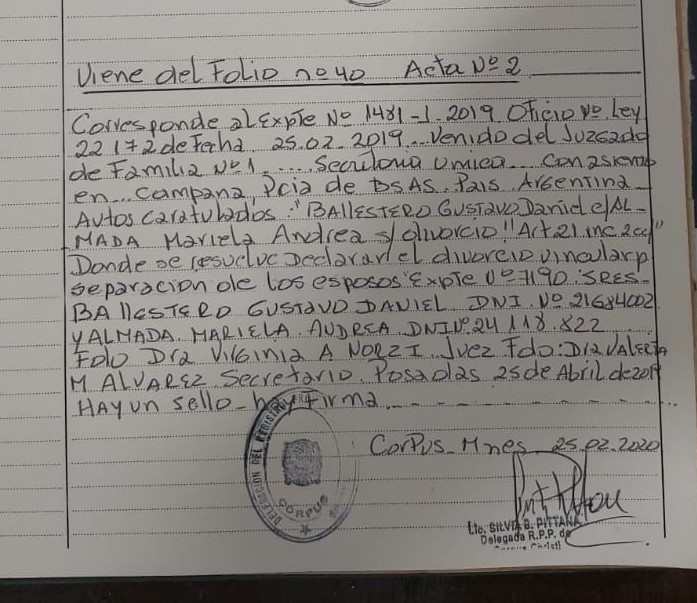 Viene del Folio nº 40 Acta Nº 2
Corresponde al Expte Nº 1481-1-2019 Oficio Nº Ley
22172 de Fecha 25.02-2019... Venido del Juzgado
de Familia Nº 1..... Secretaria Unica.... Con asiento
en... Campana, Pcia de BSAS. Pais. Argentina
Autos Caratulados: "BALLESTERO GUSTAVO Daniel c/ AL-
MADA Mariela Andrea s/ divorcio" "Art 21 inc. 2
Donde se resuelve Declarar el divorcio vincular p
separacion de los esposos Expte Nº 7190. SRES-
BALLESTERO GUSTAVO DANIEL DNI. Nº 21684002
Y ALMADA. MARIELA. ANDREA DNI Nº 24 118.822
Fdo Dra Virginia A NORZI. Juez Fdo: Dra VALERIA
M ALVAREZ Secretario. Posadas 25 de Abril de 2019
HAY un sello - hay firma
Corpus - Mnes 25.02.2020
DELEGACION DEL REGISTRO
CORPUS
Lic. SILVIA B. PITTANA
Delegada R.P.P. de